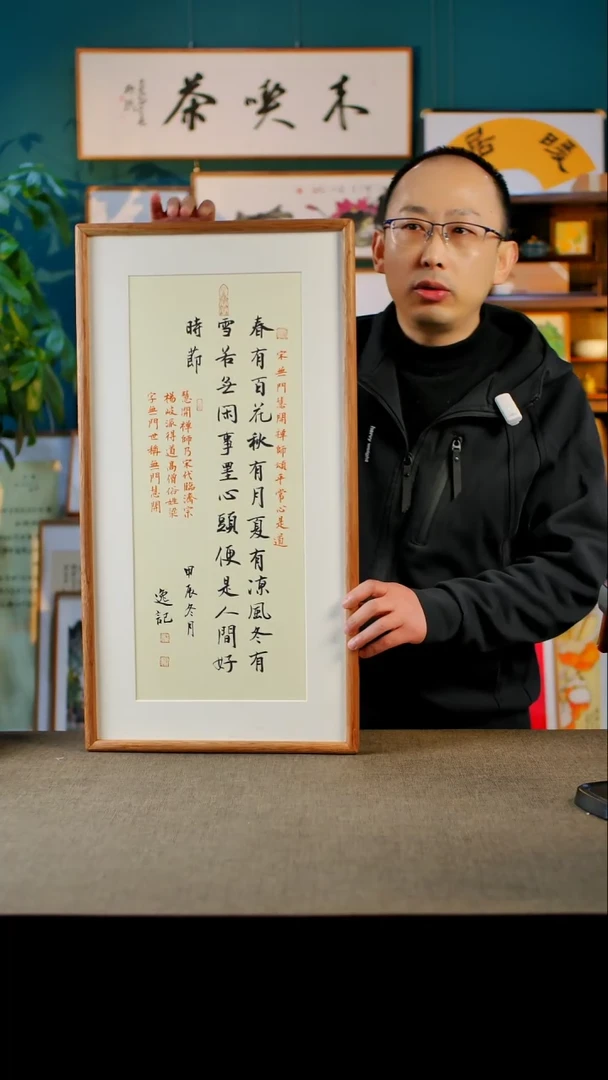 来喫茶
暖居
宋無門慧開禪師頌平常心是道
春有百花秋有月夏有凉風冬有
雪若無闲事罣心頭便是人間好
時節
慧開禪師乃宋代臨濟宗
楊岐派得道高僧俗姓梁
字無門世稱無門慧開
甲辰冬月
逸記